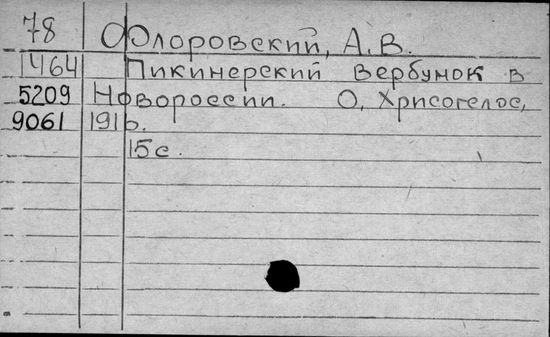 78 Флоровский, А.В.
1464 Пикинерский вербунок в
5209 Новороссии. О, Хрисогелос,
9061 1916.
15с.